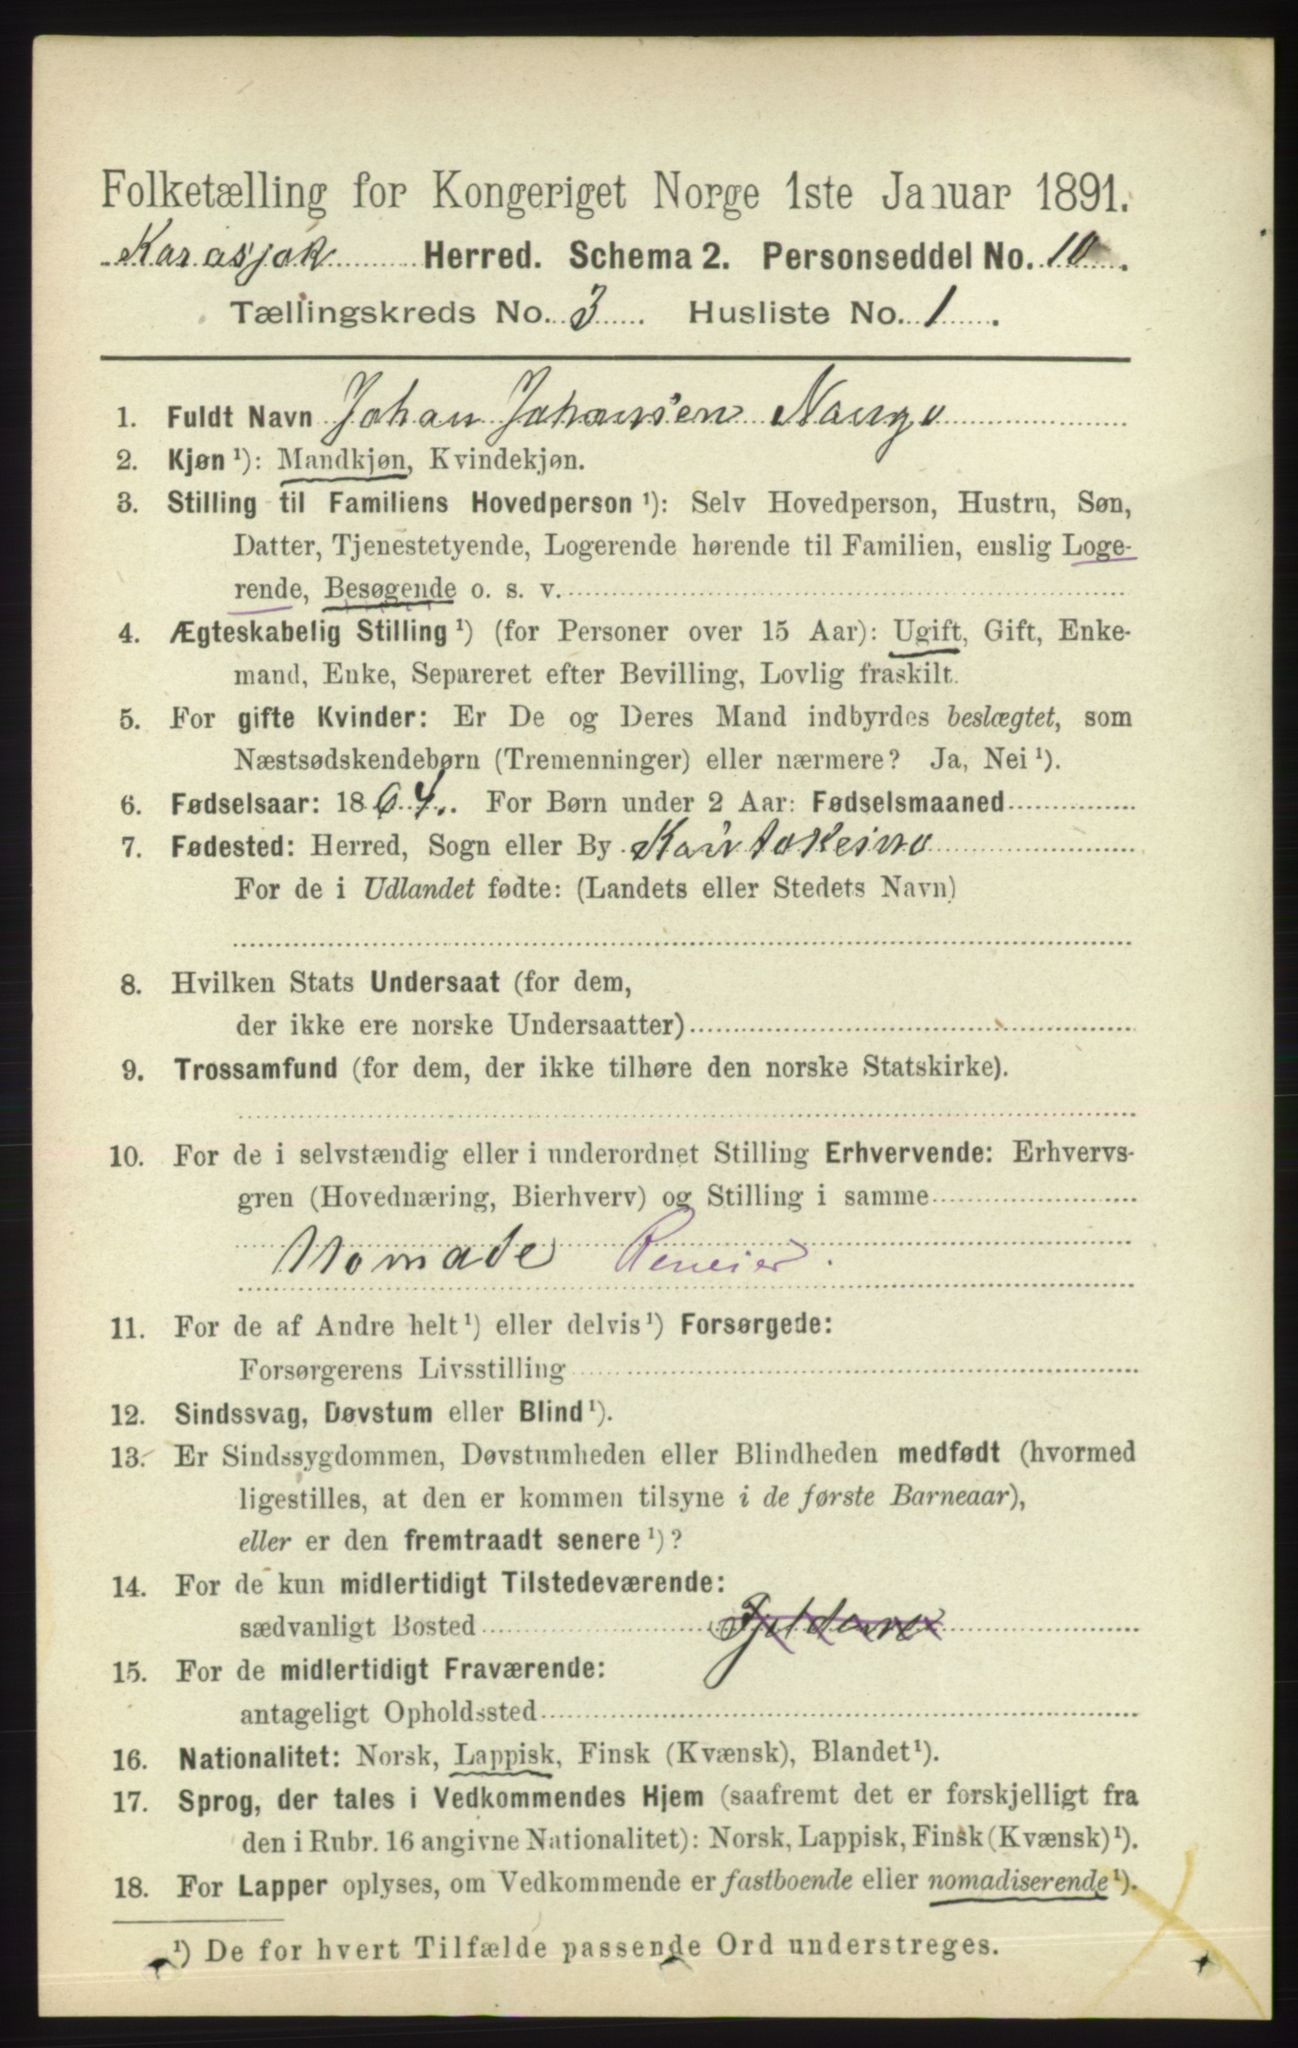 Folketælling for Kongeriget Norge 1ste Januar 1891.
Karasjok Herred. Schema 2. Personseddel No. 10.
Tællingskreds No. 3 Husliste No. 1.
1. Fuldt Navn Johan Johansen Nango
2. Kjøn ¹): Mandkjøn, Kvindekjøn.
3. Stilling til Familiens Hovedperson ¹): Selv Hovedperson, Hustru, Søn,
Datter, Tjenestetyende, Logerende hørende til Familien, enslig Loge-
rende, Besøgende o. s. v.
4. Ægteskabelig Stilling ¹) (for Personer over 15 Aar): Ugift, Gift, Enke-
mand, Enke, Separeret efter Bevilling, Lovlig fraskilt.
5. For gifte Kvinder: Er De og Deres Mand indbyrdes beslægtet, som
Næstsødskendebørn (Tremenninger) eller nærmere? Ja, Nei ¹).
6. Fødselsaar: 1864. For Børn under 2 Aar: Fødselsmaaned
7. Fødested: Herred, Sogn eller By Kautokeino
For de i Udlandet fødte: (Landets eller Stedets Navn)
8. Hvilken Stats Undersaat (for dem,
der ikke ere norske Undersaatter)
9. Trossamfund (for dem, der ikke tilhøre den norske Statskirke).
10. For de i selvstændig eller i underordnet Stilling Erhvervende: Erhvervs-
gren (Hovednæring, Bierhverv) og Stilling i samme
Nomade Reneier.
11. For de af Andre helt ¹) eller delvis ¹) Forsørgede:
Forsørgerens Livsstilling
12. Sindssvag, Døvstum eller Blind ¹).
13. Er Sindssygdommen, Døvstumheden eller Blindheden medfødt (hvormed
ligestilles, at den er kommen tilsyne i de første Barneaar),
eller er den fremtraadt senere ¹)?
14. For de kun midlertidigt Tilstedeværende:
sædvanligt Bosted
15. For de midlertidigt Fraværende:
antageligt Opholdssted
16. Nationalitet: Norsk, Lappisk, Finsk (Kvænsk), Blandet ¹).
17. Sprog, der tales i Vedkommendes Hjem (saafremt det er forskjelligt fra
den i Rubr. 16 angivne Nationalitet): Norsk, Lappisk, Finsk (Kvænsk) ¹).
18. For Lapper oplyses, om Vedkommende er fastboende eller nomadiserende ¹).
¹) De for hvert Tilfælde passende Ord understreges.